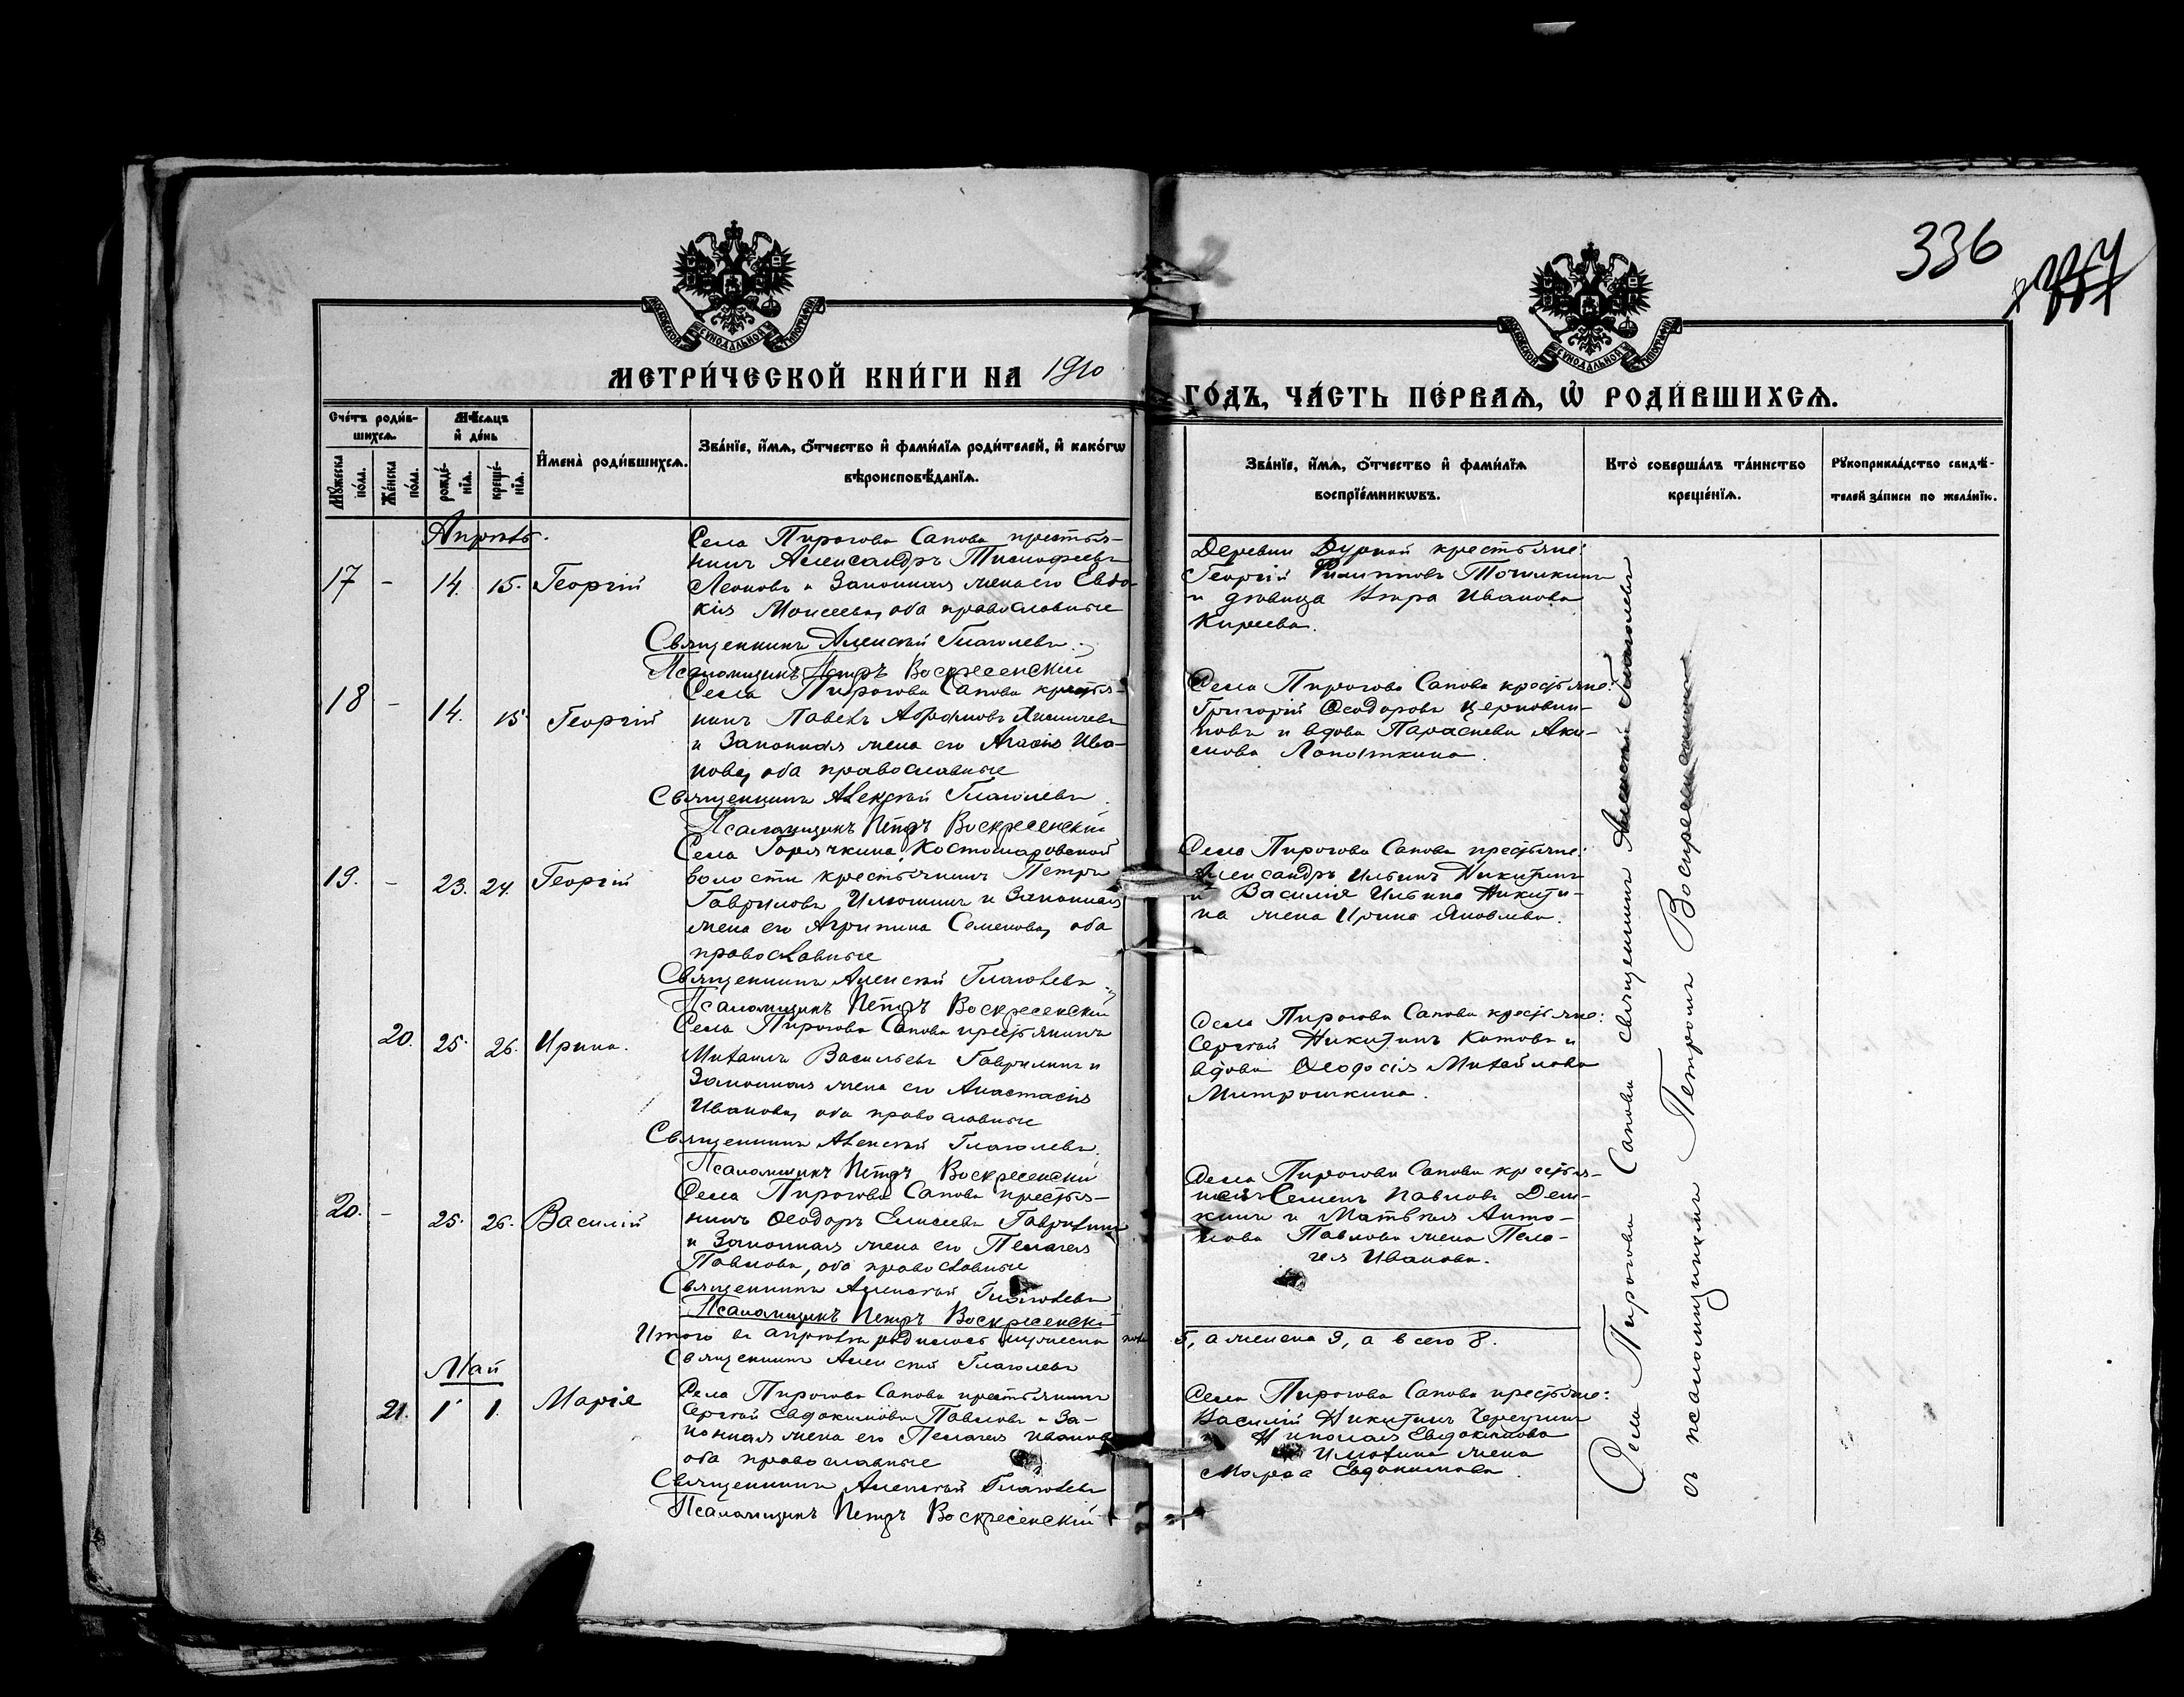 336
МОСКОВСКОЙ СУНОДАЛЬНОЙ ТИПОГРАФІИ
МОСКОВСКОЙ СУНОДАЛЬНОЙ ТИПОГРАФІИ
МЕТРИ́ЧЕСКОЙ КНИ́ГИ НА 1910
ГО́ДЪ, ЧА́СТЬ ПЕ́РВАѦ, Ѽ РОДИ́ВШИХСѦ.
Сче́тъ роди́в-
шихсѧ.
Мѣ́сѧцъ
и҆ де́нь
Мꙋ́жеска
по́ла.
Же́нска
по́ла.
рожде́-
нїѧ.
креще́-
нїѧ.
И҆мена̀ роди́вшихсѧ.
Зва́нїе, и҆́мѧ, ѻ҆́тчество и҆ фами́лїѧ роди́телей, и҆ како́гѡ
вѣроисповѣ́данїѧ.
Зва́нїе, и҆́мѧ, ѻ҆́тчество и҆ фами́лїѧ
воспрїе́мникѡвъ.
Кто̀ соверша́лъ та́инство
креще́нїѧ.
Рꙋкоприкла́дство свидѣ́-
телей за́писи по жела́нїю.
Апрѣль.
17 - 14. 15. Георгій
Села Пирогова Сапова крестья-
нинъ Александръ Тимофеевъ
Леоновъ и законная жена его Евдо-
кія Моисеева, оба православные
Священникъ Алексѣй Глаголевъ.
Псаломщикъ Петръ Воскресенскій
Деревни Дурной крестьяне:
Георгій Филипповъ Точилкинъ
и дѣвица Вѣра Иванова
Киреева.
18 - 14. 15 Георгій
Села Пирогова Сапова крестья-
нинъ Павелъ Абрамовъ
и законная жена его Агаѳія Ива-
нова, оба православные
Священникъ Алексѣй Глаголевъ.
Псаломщикъ Петръ Воскресенскій
Села Пирогова Сапова крестьяне:
Григорій Ѳеодоровъ Церковни-
ковъ и вдова Параскева Аки-
мова Лопаткина.
19. - 23. 24. Георгій
Села Горячкина, Костомаровской
волости крестьянинъ Петръ
Гавриловъ Илюшинъ и законная
жена его Агрипина Семенова, оба
православные
Священникъ Алексѣй Глаголевъ.
Псаломщикъ Петръ Воскресенскій
Села Пирогова Сапова крестьяне:
Александръ Ильинъ Никитинъ
и Василія Ильина Никити-
на жена Ирина Яковлева.
20. 25. 26. Ирина.
Села Пирогова Сапова крестьянинъ
Михаилъ Васильевъ Гаврилинъ и
законная жена его Анастасія
Иванова, оба православные
Священникъ Алексѣй Глаголевъ.
Псаломщикъ Петръ Воскресенскій
Села Пирогова Сапова крестьяне:
Сергѣй Никитинъ Котовъ и
вдова Ѳеодосія Михайлова
Митрошкина.
20. - 25. 26. Василій
Села Пирогова Сапова крестья-
нинъ Ѳеодоръ Елисеевъ Гаврилинъ
и законная жена его Пелагея
Павлова, оба православные
Священникъ Алексѣй Глаголевъ
Псаломщикъ Петръ Воскресенскі
Села Пирогова Сапова крестья-
Семенъ Павловъ
и Матвѣя Анто-
нова Павлова жена Пела-
гея Иванова.
Итого въ апрѣлѣ родилось мужеска пола 5, а женска 3, а всего 8.
Священникъ Алексѣй Глаголевъ
Май
21. 1 1. Марія
Села Пирогова Сапова крестьянинъ
Сергѣй Евдокимовъ Павловъ и за-
конная жена его Пелагея Иванова
оба православные
Священникъ Алексѣй Глаголевъ
Псаломщикъ Петръ Воскресенскій
Села Пирогова Сапова крестьяне:
Василій Никитинъ
Николая Евдокимова
жена
Марѳа Евдокимова.
Села Пирогова Сапова священникъ Алексѣй Глаголевъ
съ псаломщикомъ Петромъ Воскресенскимъ.